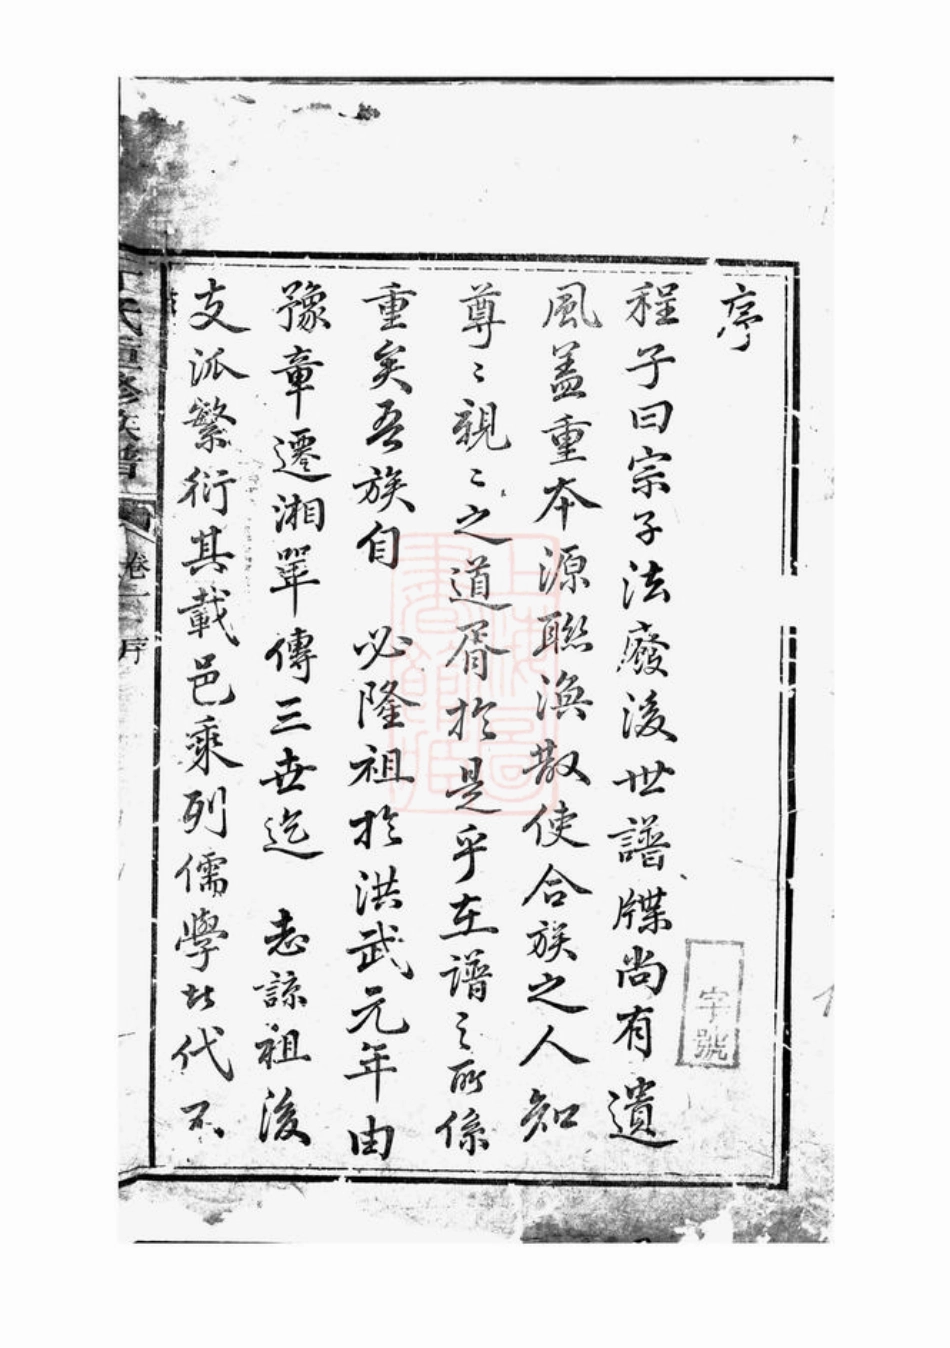 序
程子曰宗子法廢後世譜牒尚有遺
風盖重本源聯渙散使合族之人知
尊〻親〻之道胥於是乎在譜之所係
重矣吾族自 必隆祖於洪武元年由
豫章遷湘單傳三世迄 志諒祖後
支派繁衍其載邑乘列儒學者代不
氏重修族譜 卷二 序
字號
上海圖書館藏